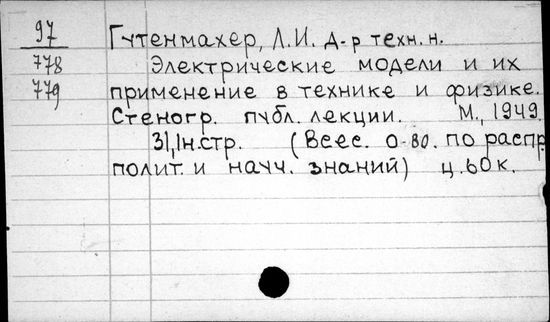 97 Гутенмахер, Л.И. д-р техн. н.
778 Электрические модели и их
779 применение в технике и физике.
Стеногр. публ. лекции. М., 1949.
31,1н.стр. (Всес. о-во. по распр.
полит. и науч. знаний) ц. 60 к.